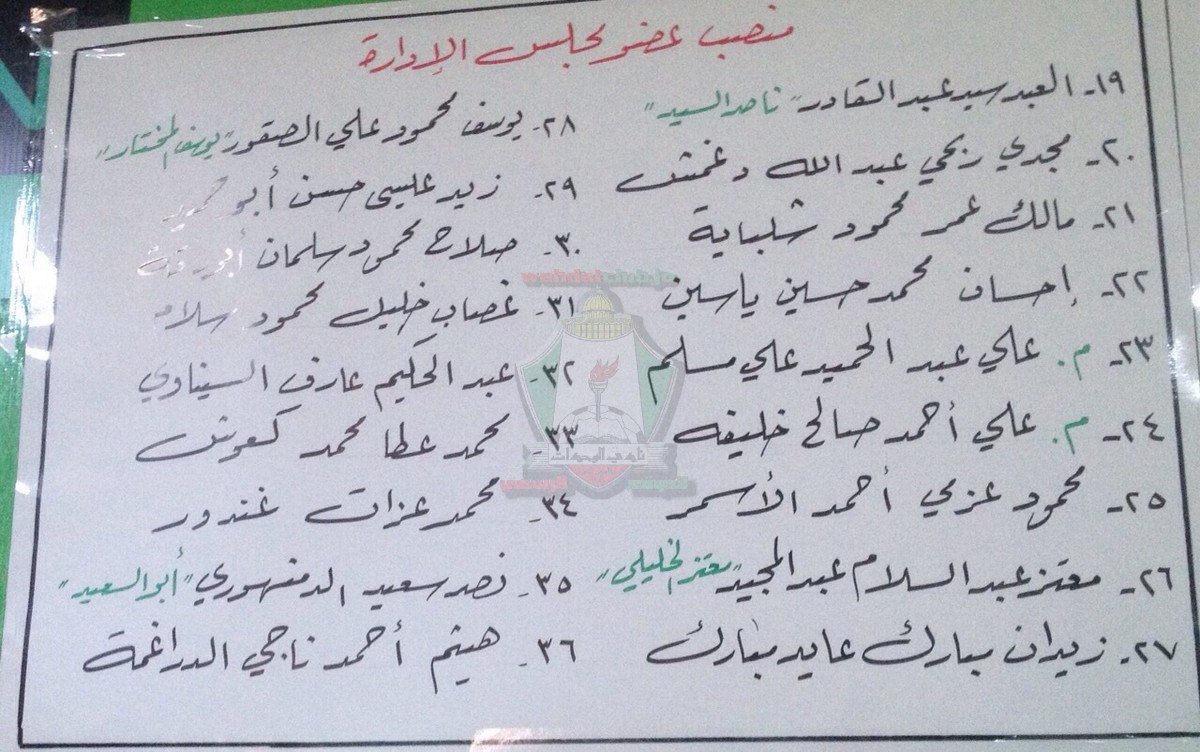 منصب عضو مجلس الإدارة
١٩- العبد سيد عبد القادر "ناصر السيد"
٢٠- مجدي ربحي عبد الله دغمش
٢١- مالك عمر محمود شلباية
٢٢- إحسان محمد حسين ياسين
٢٣- م. علي عبد الحميد علي مسلم
٢٤- م. علي أحمد صالح خليفه
٢٥- محمود عزمي أحمد الأسمر
٢٦- معتز عبد السلام عبد المجيد "معتز الخليلي"
٢٧- زيدان مبارك عايد مبارك
٢٨- يوسف محمود علي الصقور "يوسف المختار"
٢٩- زيد عيسى حسن أبو حميد
٣٠- صلاح محمود سلمان
٣١- غصاب خليل محمود سلامه
٣٢- عبد الحكيم عارف السيناوي
٣٣- محمد عطا محمد كعوش
٣٤- محمد عزات غندور
٣٥- نصر سعيد الدمنهوري "أبو السعيد"
٣٦- هيثم أحمد ناجي الدراغمة
نادي الوحدات